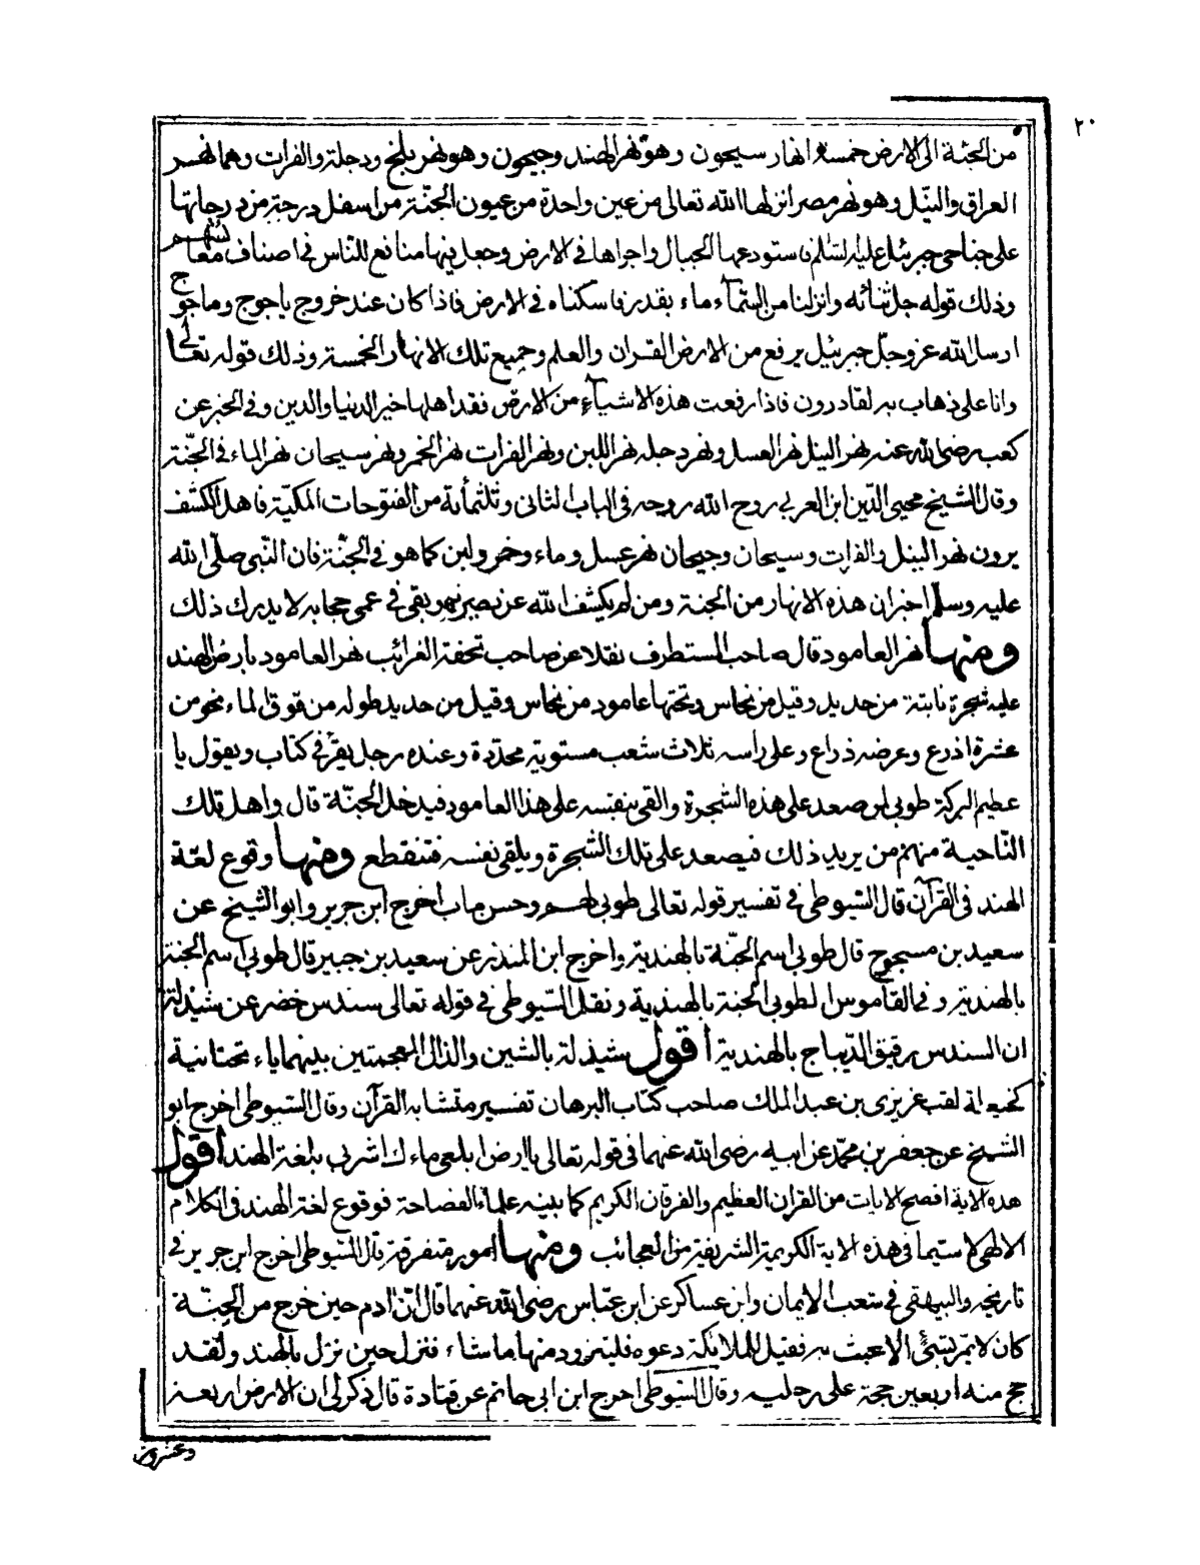 ٢٠
من الجنة الى الارض خمسة انهار سيحون وهو نهر الهند وجيحون وهو نهر بلخ ودجلة والفرات وهما نهر
العراق والنيل وهو نهر مصر انزلها الله تعالى من عين واحدة من عيون الجنة من اسفل درجة من درجاتها
على جناحى جبرئيل عليه السلام فاستودعها الجبال واجراها فى الارض وجعل فيها منافع للناس فى اصناف معاشهم
وذلك قوله جل ثنائه وانزلنا من السمآء ماء بقدر فاسكناه فى الارض فاذا كان عند خروج ياجوج وماجوج
ارسل الله عز وجل جبرئيل يرفع من الارض القران والعلم وجميع تلك الانهار الخمسة وذلك قوله تعالى
وانا على ذهاب به لقادرون فاذا رفعت هذه الاشيآء من الارض فقد اهلها خير الدنيا والدين وفى الخبر عن
كعب رضى الله عنه نهر النيل نهر العسل ونهر دجله نهر اللبن ونهر الفرات نهر الخمر ونهر سيحان نهر الماء فى الجنة
وقال الشيخ محيى الدين ابن العربي روح الله روحه فى الباب الثانى وثلثمأية من الفتوحات المكية فاهل الكشف
يرون نهر النيل والفرات وسيحان وجيحان نهر عسل وماء وخمر ولبن كما هو فى الجنة فان النبى صلى الله
عليه وسلم اخبر ان هذه الانهار من الجنة ومن لم يكشف الله عن بصيرته وبقى فى عمى حجابه لا يدرك ذلك
ومنها نهر العامود قال صاحب المستطرف نقلا عن صاحب تحفة الغرائب نهر العامود بارض الهند
عليه شجرة نابتة من حديد وقيل من نحاس وتحتها عامود من نحاس وقيل من حديد طوله من فوق الماء نحو من
عشرة اذرع وعرضه ذراع وعلى راسه ثلاث شعب مستوية محددة وعنده رجل يقرأ فى كتاب ويقول يا
عظيم البركة طوبى لمن صعد على هذه الشجرة والقى بنفسه على هذا العامود فيدخل الجنة قال واهل تلك
الناحية منهم من يريد ذلك فيصعد على تلك الشجرة ويلقى نفسه فتنقطع ومنها وقوع لغة
الهند فى القرآن قال السيوطى فى تفسير قوله تعالى طوبى لهم وحسن ماب اخرج ابن جرير وابو الشيخ عن
سعيد بن مسجوح قال طوبى اسم الجنة بالهندية واخرج ابن المنذر عن سعيد بن جبير قال طوبى اسم الجنة
بالهندية وفى القاموس الطوبى الجنة بالهندية ونقل السيوطى فى قوله تعالى سندس خضر عن شيذلة
ان السندس رقيق الديباج بالهندية اقول شيذلة بالشين والذال المعجمتين بينهما ياء تحتانية
لقب عزيزى بن عبد الملك صاحب كتاب البرهان تفسير متشابه القرآن وقال السيوطى اخرج ابو
الشيخ عن جعفر بن محمد عن ابيه رضى الله عنهما فى قوله تعالى ياارض ابلعى ماءك اشربى بلغة الهند اقول
هذه الاية افصح الايات من القران العظيم والفرقان الكريم كما بينه علماء الفصاحة فوقوع لغة الهند فى الكلام
الالهى لاسيما فى هذه الاية الكريمة الشريفة من العجائب ومنها امور متفرقة قال السيوطى اخرج ابن جرير فى
تاريخه والبيهقى فى شعب الايمان وابن عساكر عن ابن عباس رضى الله عنهما قال ان ادم حين خرج من الجنة
كان لا يمر بشئ الا عبث به فقيل للملائكة دعوه فليتزود منها ما شاء فنزل حين نزل بالهند ولقد
حج منه اربعين حجة على رجليه وقال السيوطى اخرج ابن ابى حاتم عن قتادة قال ذكر لى ان الارض اربعة
وعشرون